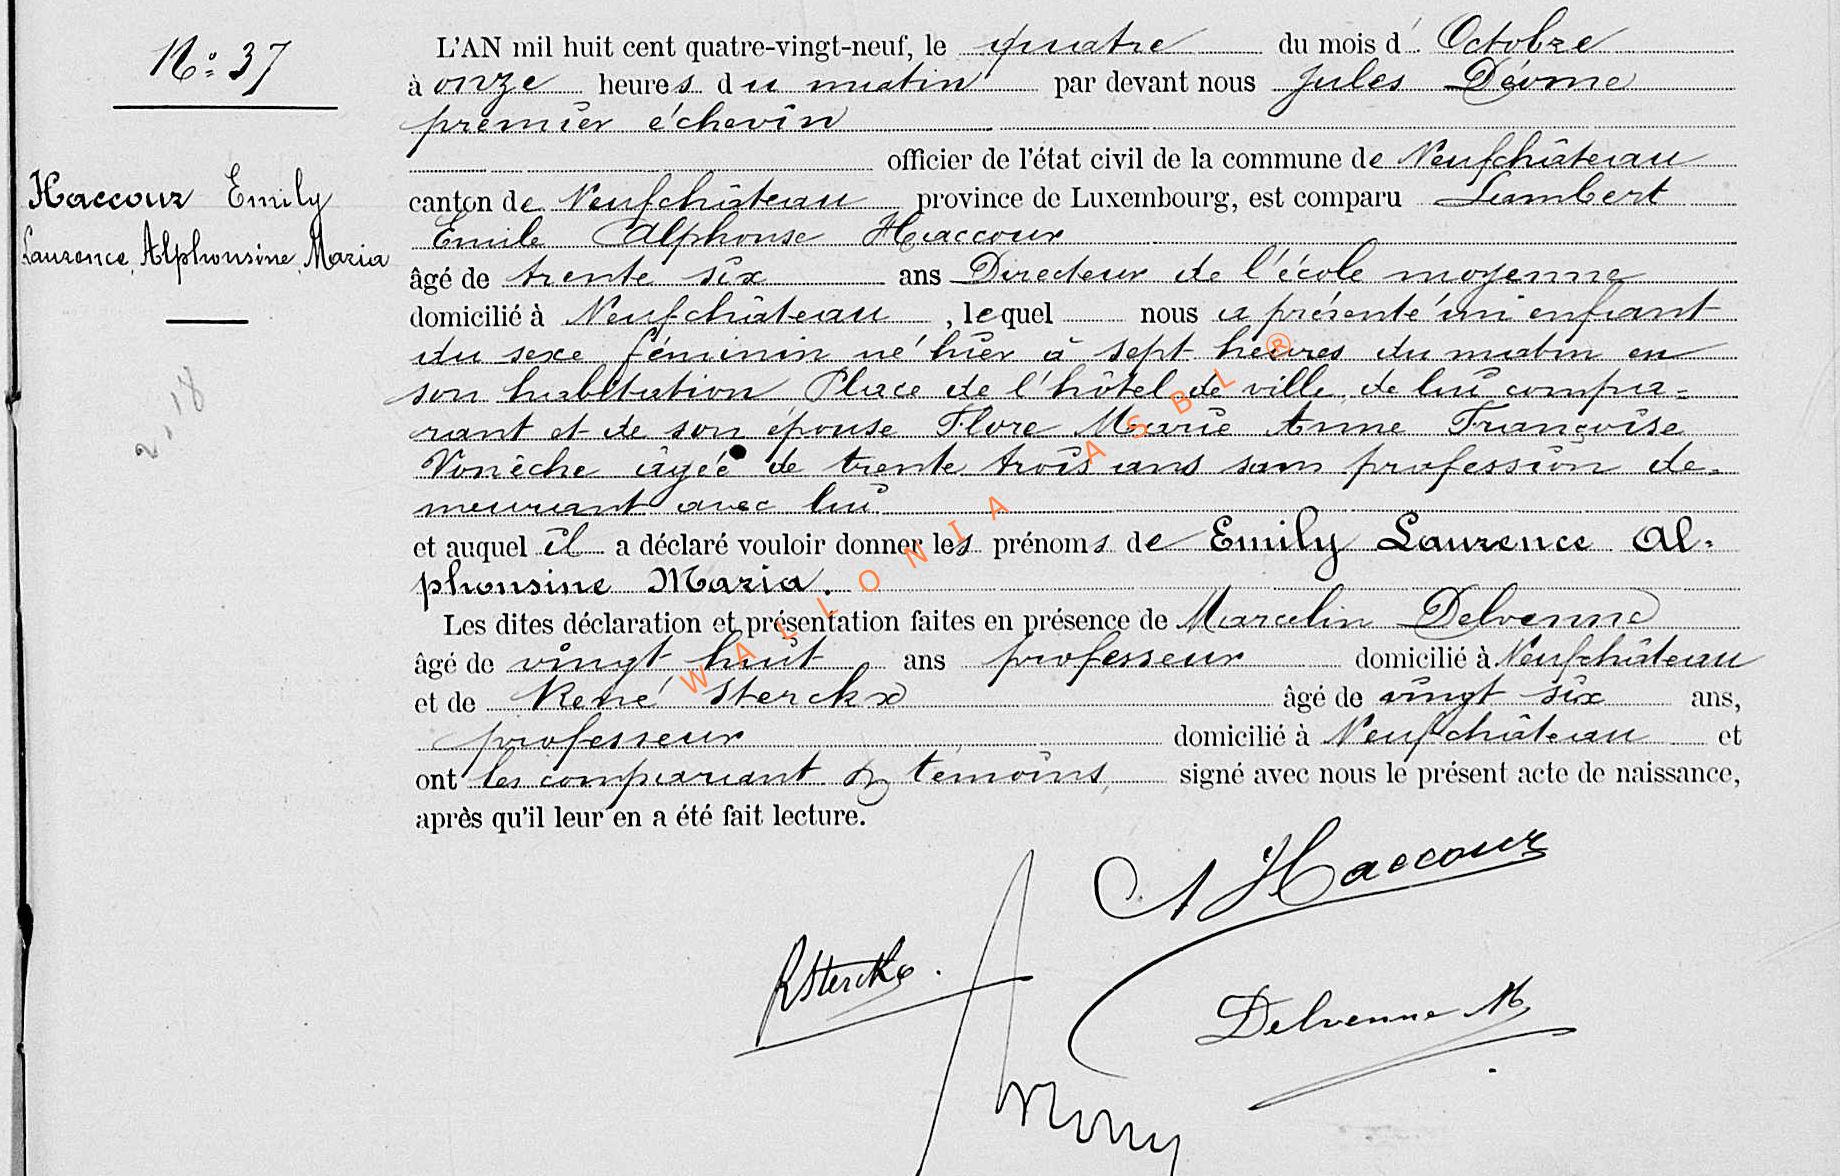 No: 37
Haccour Emily
Laurence, Alphonsine, Maria
L'AN mil huit cent quatre-vingt-neuf, le quatre du mois d' Octobre
à onze heures du matin par devant nous Jules
premier échevin
officier de l'état civil de la commune de Neufchâteau
canton de Neufchâteau province de Luxembourg, est comparu Lambert
Emile Alphonse Haccour
âgé de trente six ans Directeur de l'école moyenne
domicilié à Neufchâteau, lequel nous a présenté un enfant
du sexe féminin né hier à sept heures du matin en
son habitation Place de l'hôtel de ville, de lui compa=
rant et de son épouse Flore Marie Anne Françoise
Vonêche âgée de trente trois ans sans profession de=
meurant avec lui
et auquel il a déclaré vouloir donner les prénoms de Emily Laurence Al=
phonsine Maria.
Les dites déclaration et présentation faites en présence de Marcelin Delvenne
âgé de vingt huit ans professeur domicilié à Neufchâteau
et de René Sterckx âgé de vingt six ans,
professeur domicilié à Neufchâteau et
ont les comparant & témoins, signé avec nous le présent acte de naissance,
après qu'il leur en a été fait lecture.
A Haccour
RSterckx.
Delvenne M
WALLONIA ASBL ®